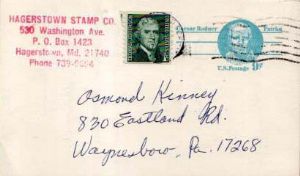 HAGERSTOWN STAMP CO.
530 Washington Ave.
P. O. Box 1423
Hagerstown, Md. 21740
Phone 739-
Caesar Rodney Patriot
U.S. Postage 9¢
Osmond Kinney
830 Eastland Rd.
Waynesboro, Pa. 17268